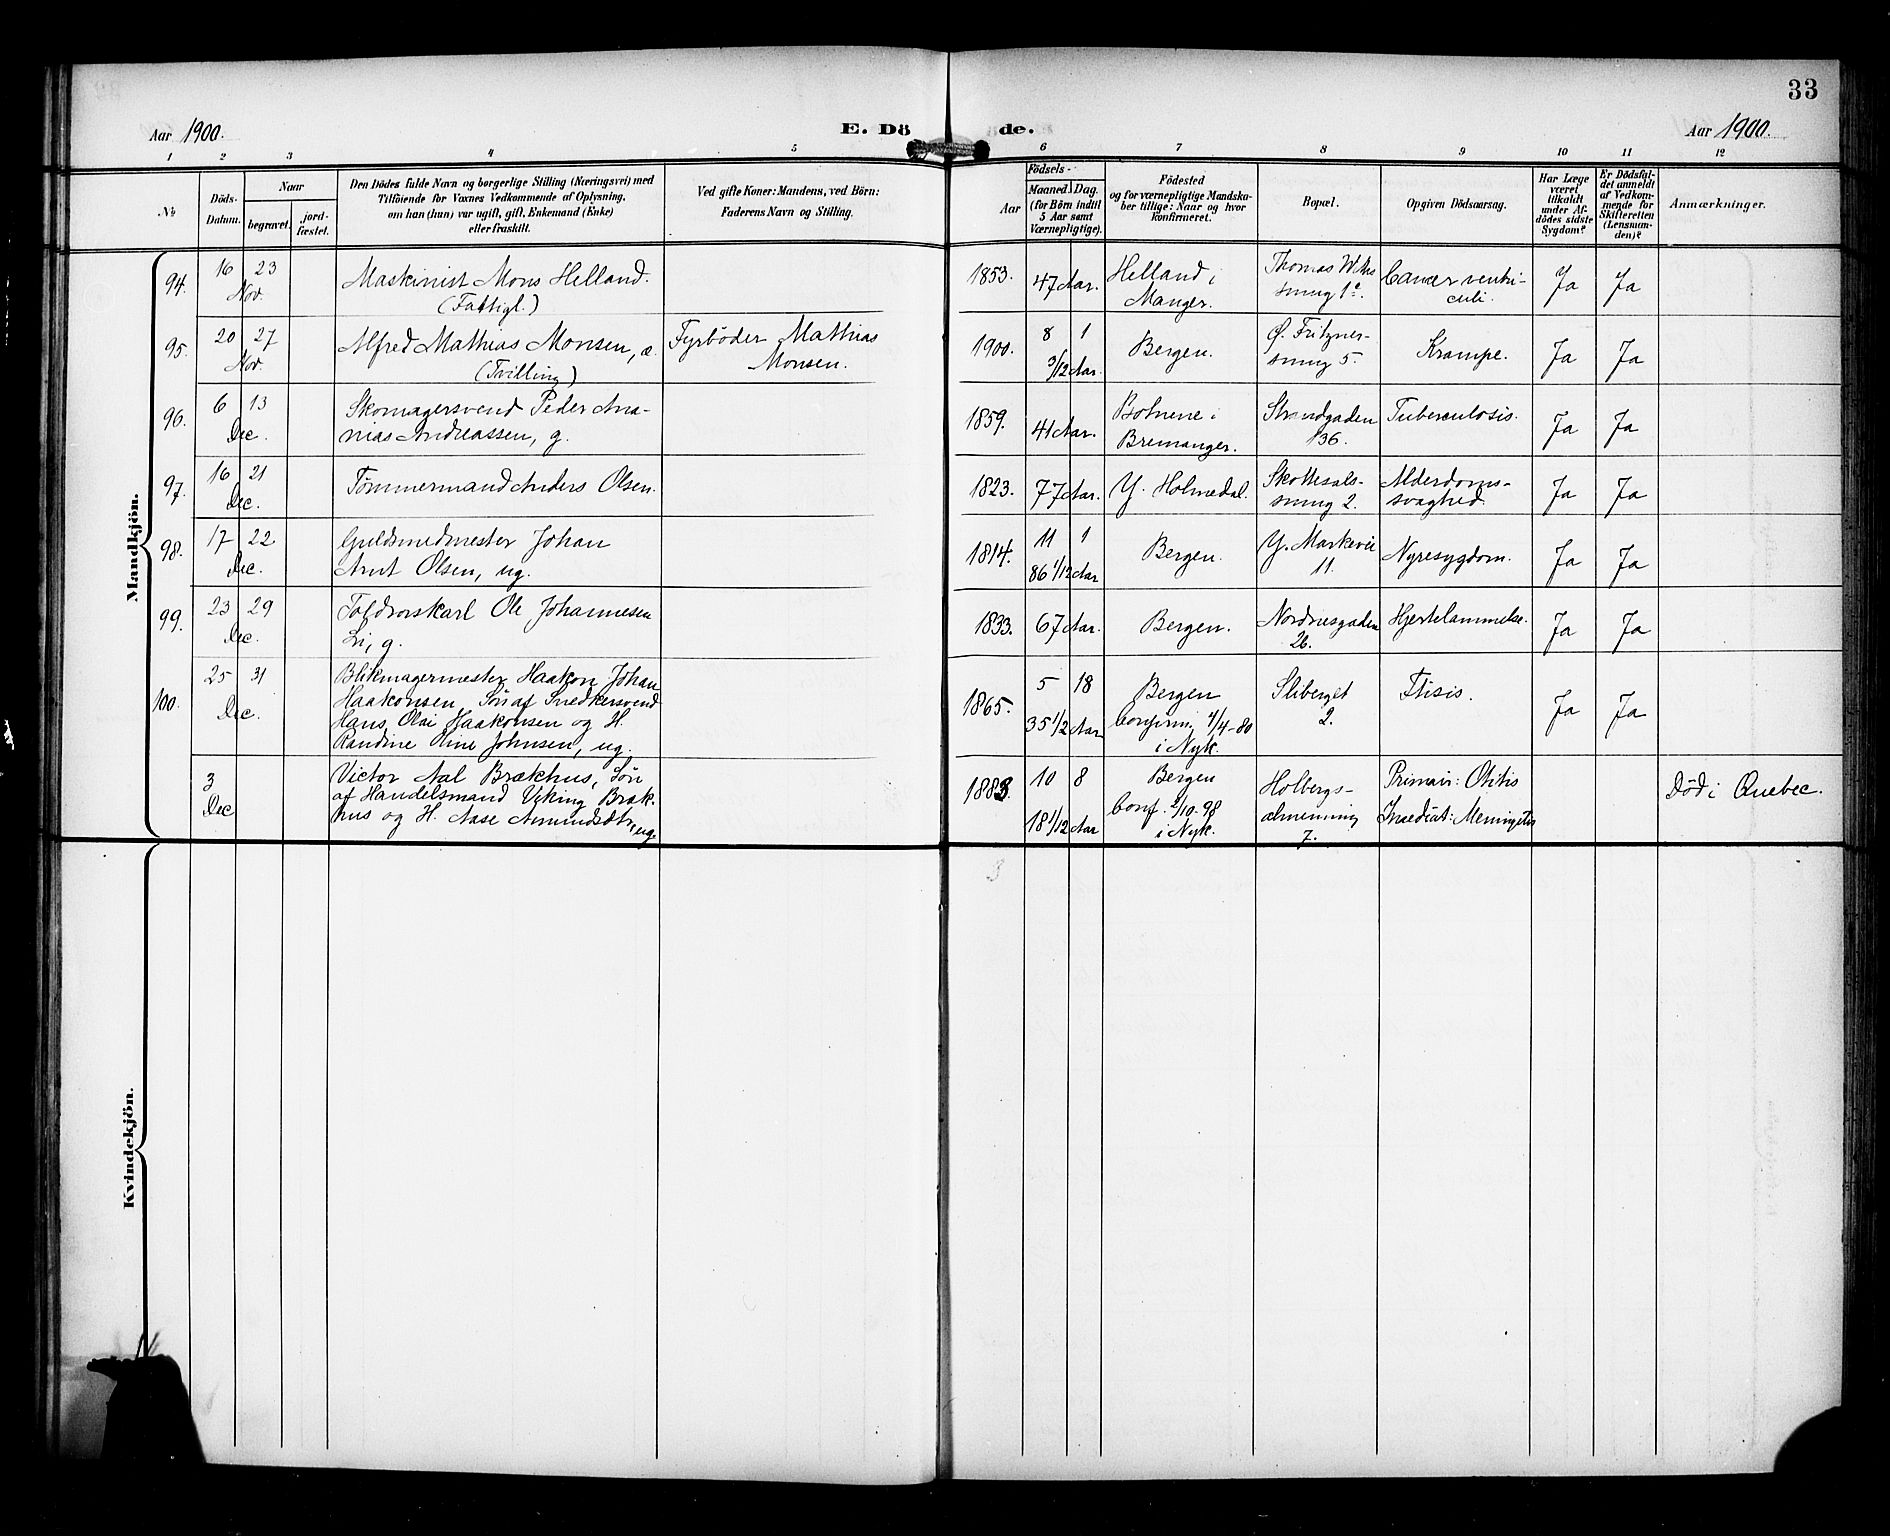 33
Aar 1900.
E. Dö de.
Aar 1900.
1 2 3 4 5 6 7 8 9 10 11 12
No
Döds-
Datum.
Naar
begravet.
jord-
fæstet.
Den Dödes fulde Navn og borgerlige Stilling (Næringsvei) med
Tilföiende for Voxnes Vedkommende af Oplysning,
om han (hun) var ugift, gift, Enkemand (Enke)
eller fraskilt.
Ved gifte Koner: Mandens, ved Börn:
Faderens Navn og Stilling.
Födsels-
Aar
Maaned. Dag.
(for Börn indtil
5 Aar samt
Værnepligtige).
Födested
og for værnepligtige Mandska-
ber tillige: Naar og hvor
konfirmeret.
Bopæl.
Opgiven Dödsaarsag.
Har Læge
været
tilkaldt
under Af-
dödes sidste
Sygdom?
Er Dödsfal-
det anmeldt
af Vedkom-
mende for
Skifteretten
(Lensman-
den)?
Anmærkninger.
Mandkjön.
94.
16 23
Nov.
Maskinist Mons Helland.
(Fattigl.)
1853.
47 Aar.
Helland i
Manger.
Thomas
smug 1a.
Cancer ventri-
culi.
Ja
Ja
95.
20 27
Nov.
Alfred Mathias Monsen, æ.
(Tvilling)
Fyrböder Mathias
Monsen.
1900.
8 1
3/12 Aar.
Bergen.
Ø. Fritzner-
smug 5.
Krampe.
Ja
Ja
96.
6 13
Dec.
Skomagersvend Peder Ana-
nias Andreassen, g.
1859.
41 Aar.
Botnene i
Bremanger.
Strandgaden
136.
Tuberculosis.
Ja
Ja
97.
16 21
Dec.
Tömmermand Anders Olsen.
1823.
77 Aar.
Y. Holmedal.
Skottesals-
smug 2.
Alderdoms-
svaghed.
Ja
Ja
98.
17 22
Dec.
Guldsmedmester Johan
Arnt Olsen, ug.
1814.
11 1
86 1/12 Aar
Bergen.
Y. Markevei
11.
Nyresygdom.
Ja
Ja
99.
23 29
Dec.
Toldrorskarl Ole Johannesen
Li, g.
1833.
67 Aar.
Bergen.
Nordnesgaden
26.
Hjertelammelse.
Ja
Ja
100.
25 31
Dec.
Blikmagermester Haakon Johan
Haakonsen, Sön af Snedkersvend
Hans Olai Haakonsen og H.
Randine Oline Johnsen, ug.
1865.
5 18
35 1/2 Aar
Bergen
Confirm. 4/4-80
i Nyk.
Sliberget
2.
Ftisis.
Ja
Ja
3
Dec
Victor Aal Brækhus, Sön
af Handelsmand Viking Bræk-
hus og H. Aase Amundsdtr, ug.
1883.
10 8
18 1/12 Aar
Bergen
Conf. 2/10-98
i Nyk.
Holbergs-
almenning
7.
Primair: Otitis
Meningitis
Död i Quebec.
3
Kvindekjön.